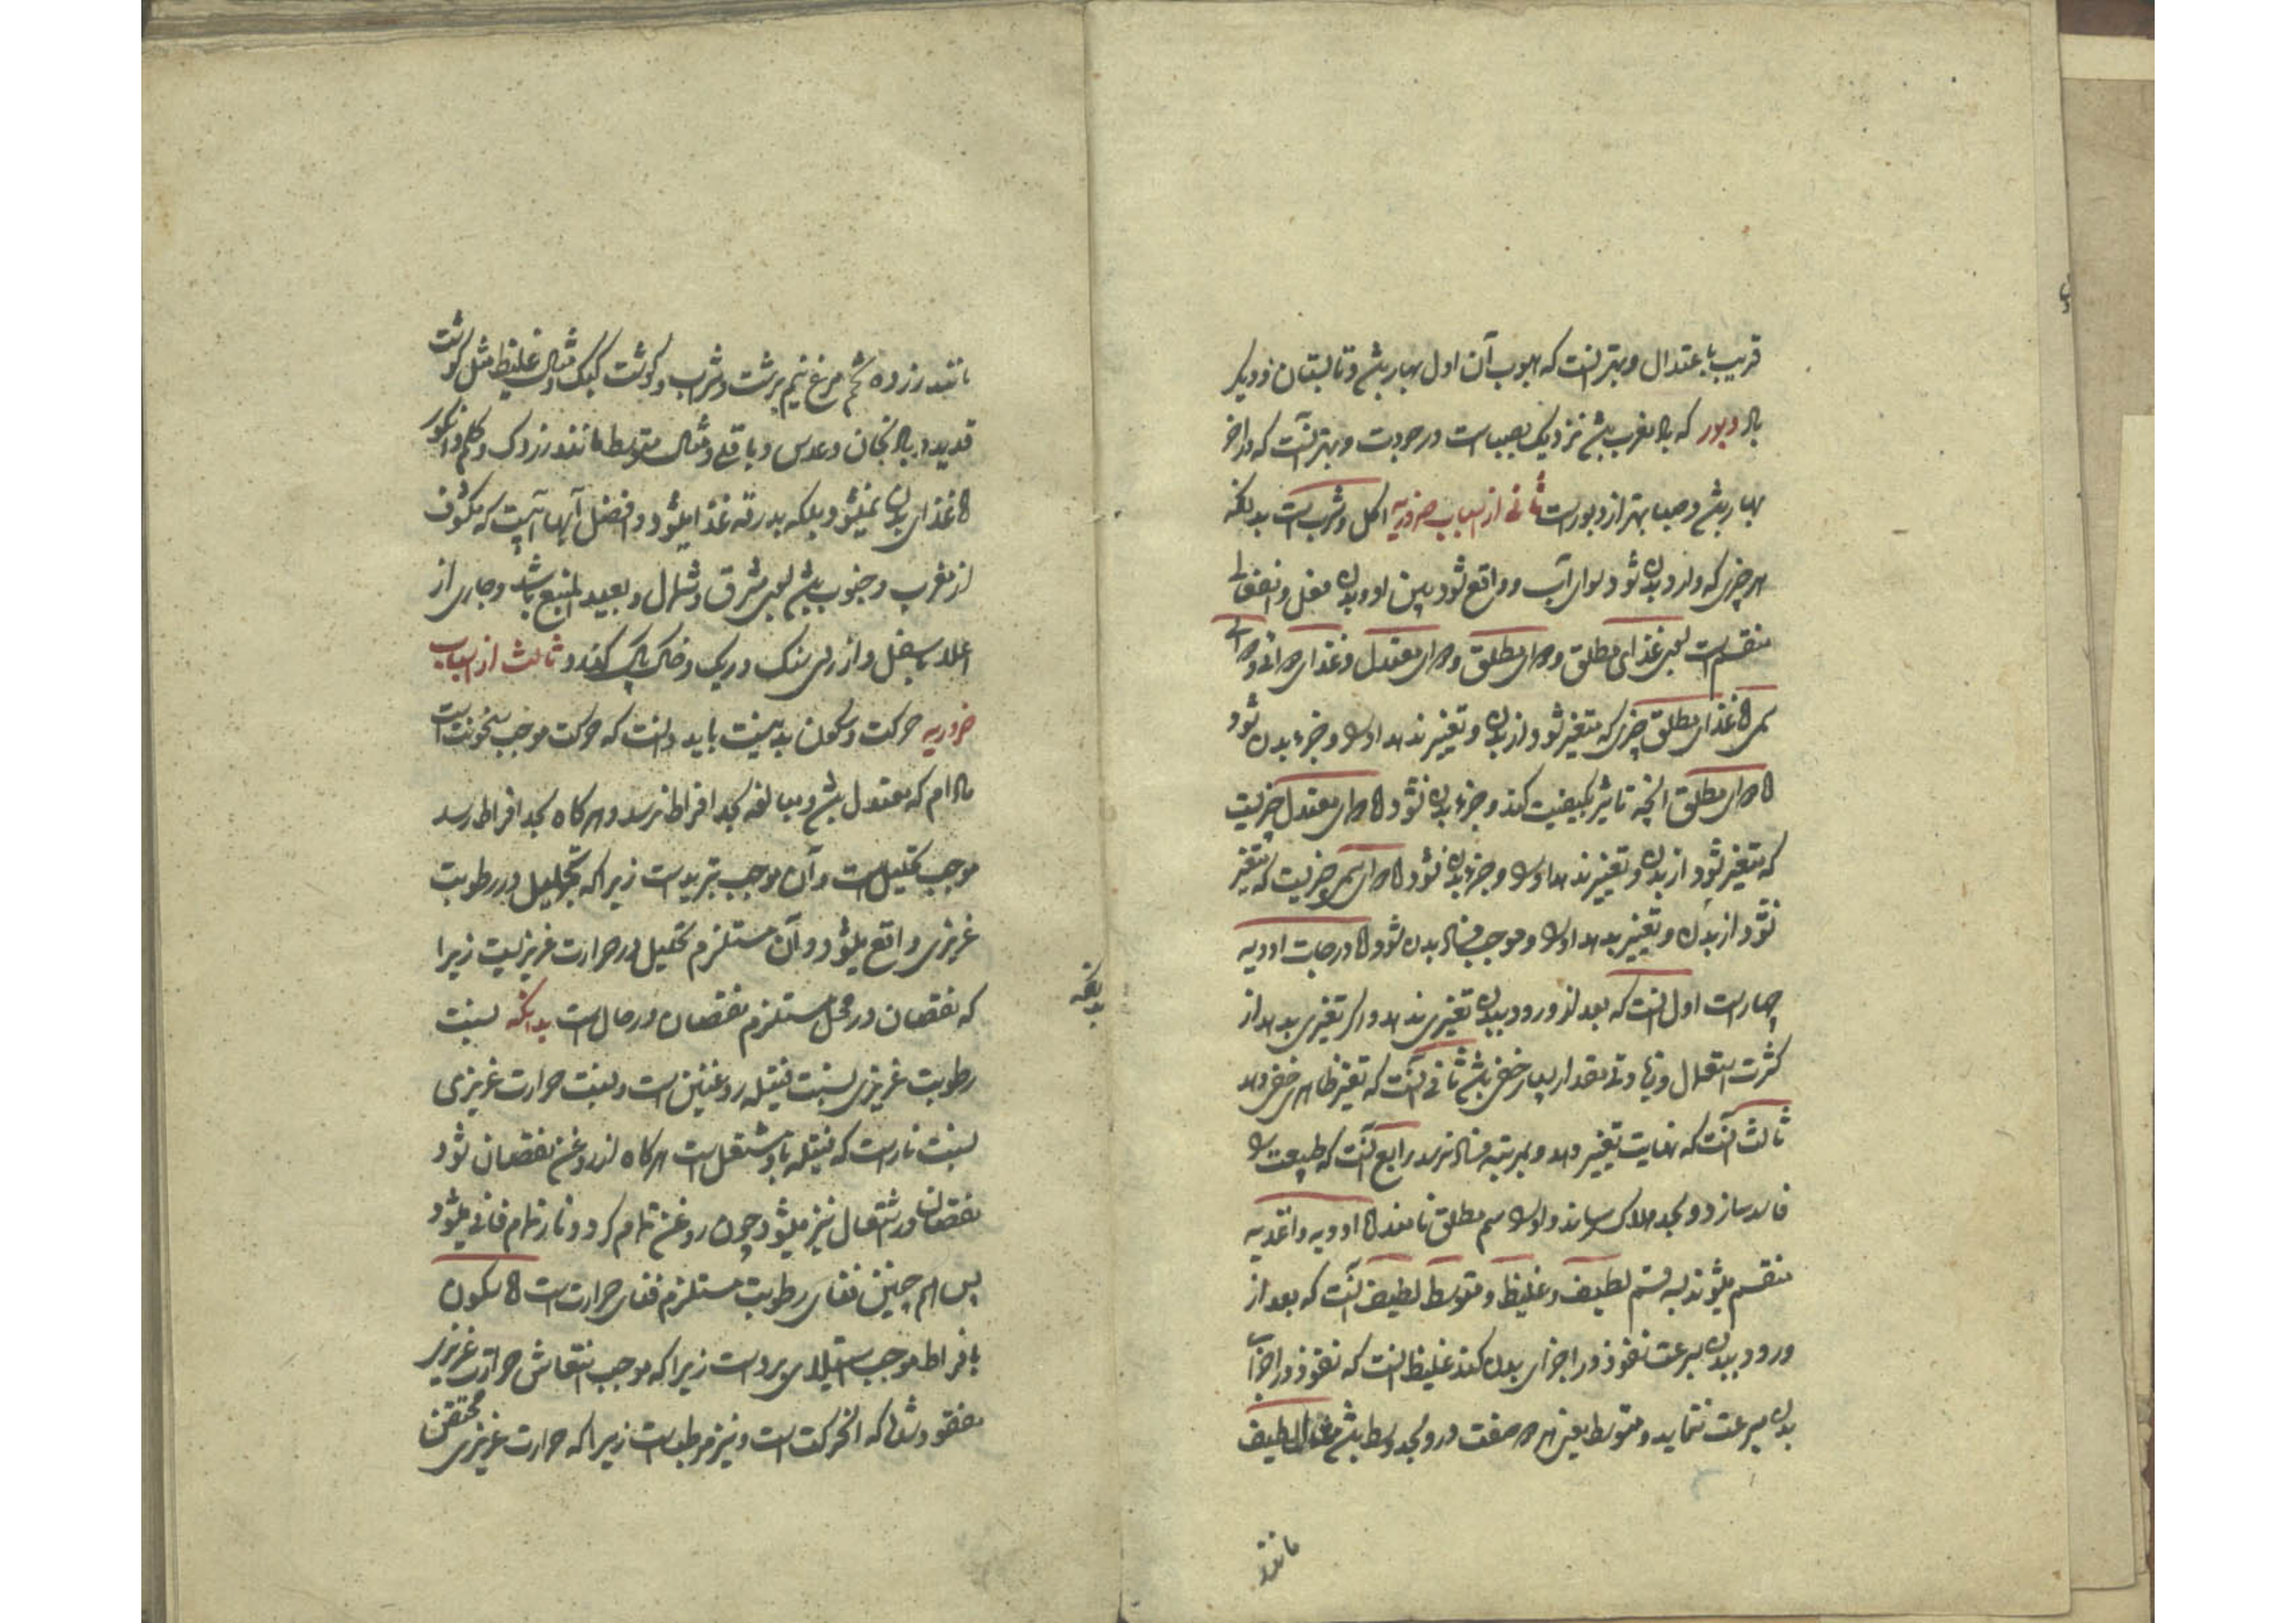 قریب باعتدال و بهتر آنست که هبوب آن اول بهار باشد و تابستان و دیگر
باد دبور که باد مغرب باشد نزدیک بصباست در جودت و بهتر آنست که در آخر
بهار باشد و صبا بهتر از دبور است ثانی از اسباب ضروریه اکل و شرب است بدانکه
هر چیزی که وارد بدن شود سوای آب و واقع شود بین او و بدن فعل و انفعالی
منقسم است بسوی غذای مطلق و دوای مطلق و دوای معتدل و غذای دوائی و دوای
سمی اما غذای مطلق چیزی که متغیر شود از بدن و تغییر ندهد او را و جزء بدن شود
اما دوای مطلق آنچه تاثیر بکیفیت کند و جزء بدن نشود اما دوای معتدل چیزیست
که متغیر شود از بدن و تغییر ندهد او را و جزء بدن نشود اما دوای سمی چیزیست که متغیر
نشود از بدن و تغییر بدهد او را و موجب فساد بدن شود اما درجات ادویه
چهار است اول آنست که بعد از ورود ببدن تغییری ندهد و اگر تغییری بدهد از
کثرت استعمال و زیادتی مقدار بسیار خفی باشد ثانی آنست که تغییر ظاهری خفی دهد
ثالث آنست که بغایت تغییر دهد و بمرتبه فساد نرسد رابع آنست که طبیعت را
فاسد سازد و بحد هلاک رساند و او را سم مطلق نامند اما ادویه و اغذیه
منقسم میشوند بسه قسم لطیف و غلیظ و متوسط لطیف آنست که بعد از
ورود ببدن بسرعت نفوذ در اجزای بدن کند غلیظ آنست که نفوذ در اجزای
بدن بسرعت ننماید و متوسط یعنی هر دو صفت در او بحد وسط باشد مثال لطیف
مانند
مانند زرده تخم مرغ نیم برشت و شراب و گوشت کبک و مثال غلیظ مثل گوشت
قدید و بادنجان و عدس و باقلی و مثال متوسط مانند زردک و کلم و انگور
اما غذای بدن نمیشود بلکه بدرقه غذا میشود و افضل آبها آبیست که مکشوف
از مغرب و جنوب باشد بسوی مشرق و شمال و بعید المنبع باشد و جاری از
اعلا باسفل و از روی سنگ و ریگ و خاک پاک کند و ثالث از اسباب
ضروریه حرکت و سکون بدنیست باید دانست که حرکت موجب سخونت است
مادام که معتدل باشد و مبالغه بحد افراط نرسد و هر گاه بحد افراط رسد
موجب تحلیل است و آن موجب تبرید است زیرا که تحلیل در رطوبت
غریزی واقع میشود و آن مستلزم تحلیل در حرارت غریزیست زیرا
که نقصان در محل مستلزم نقصان در حال است بدانکه نسبت
رطوبت غریزی بنسبت فتیله روغنین است و نسبت حرارت غریزی
بنسبت نار است که فتیله باو مشتعل است هر گاه از روغن نقصان شود
نقصان در اشتعال نیز میشود چون روغن تمام گردد نار تمام فانی میشود
پس هم چنین فنای رطوبت مستلزم فنای حرارت است اما سکون
بافراط موجب استیلای برد است زیرا که موجب انتعاش حرارت غریزی
مفقود شد که آن حرکت است و نیز مرطب است زیرا که حرارت غریزی محتقن
بدانکه